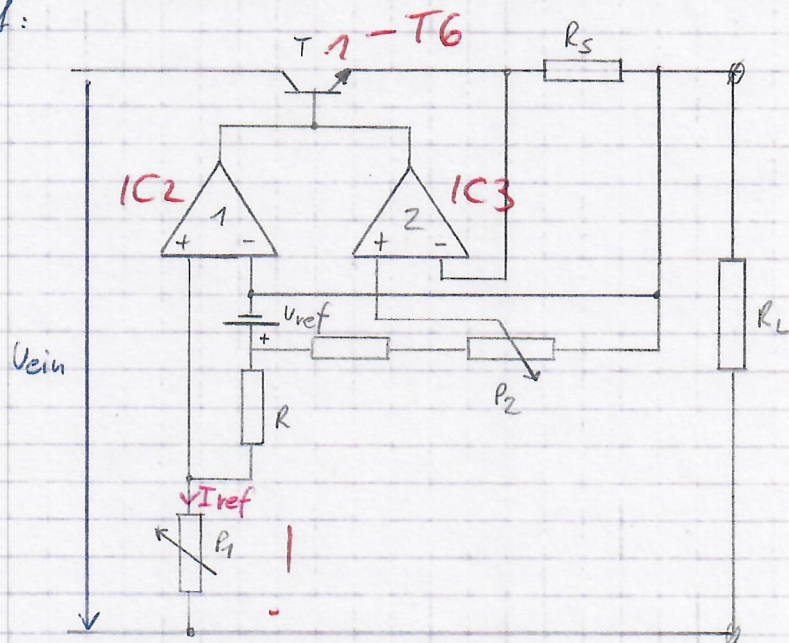 f:
T 1 - T6
Rs
IC2
1
+ -
IC3
2
+ -
Uref
+
Uein
R
P2
RL
Iref
P1